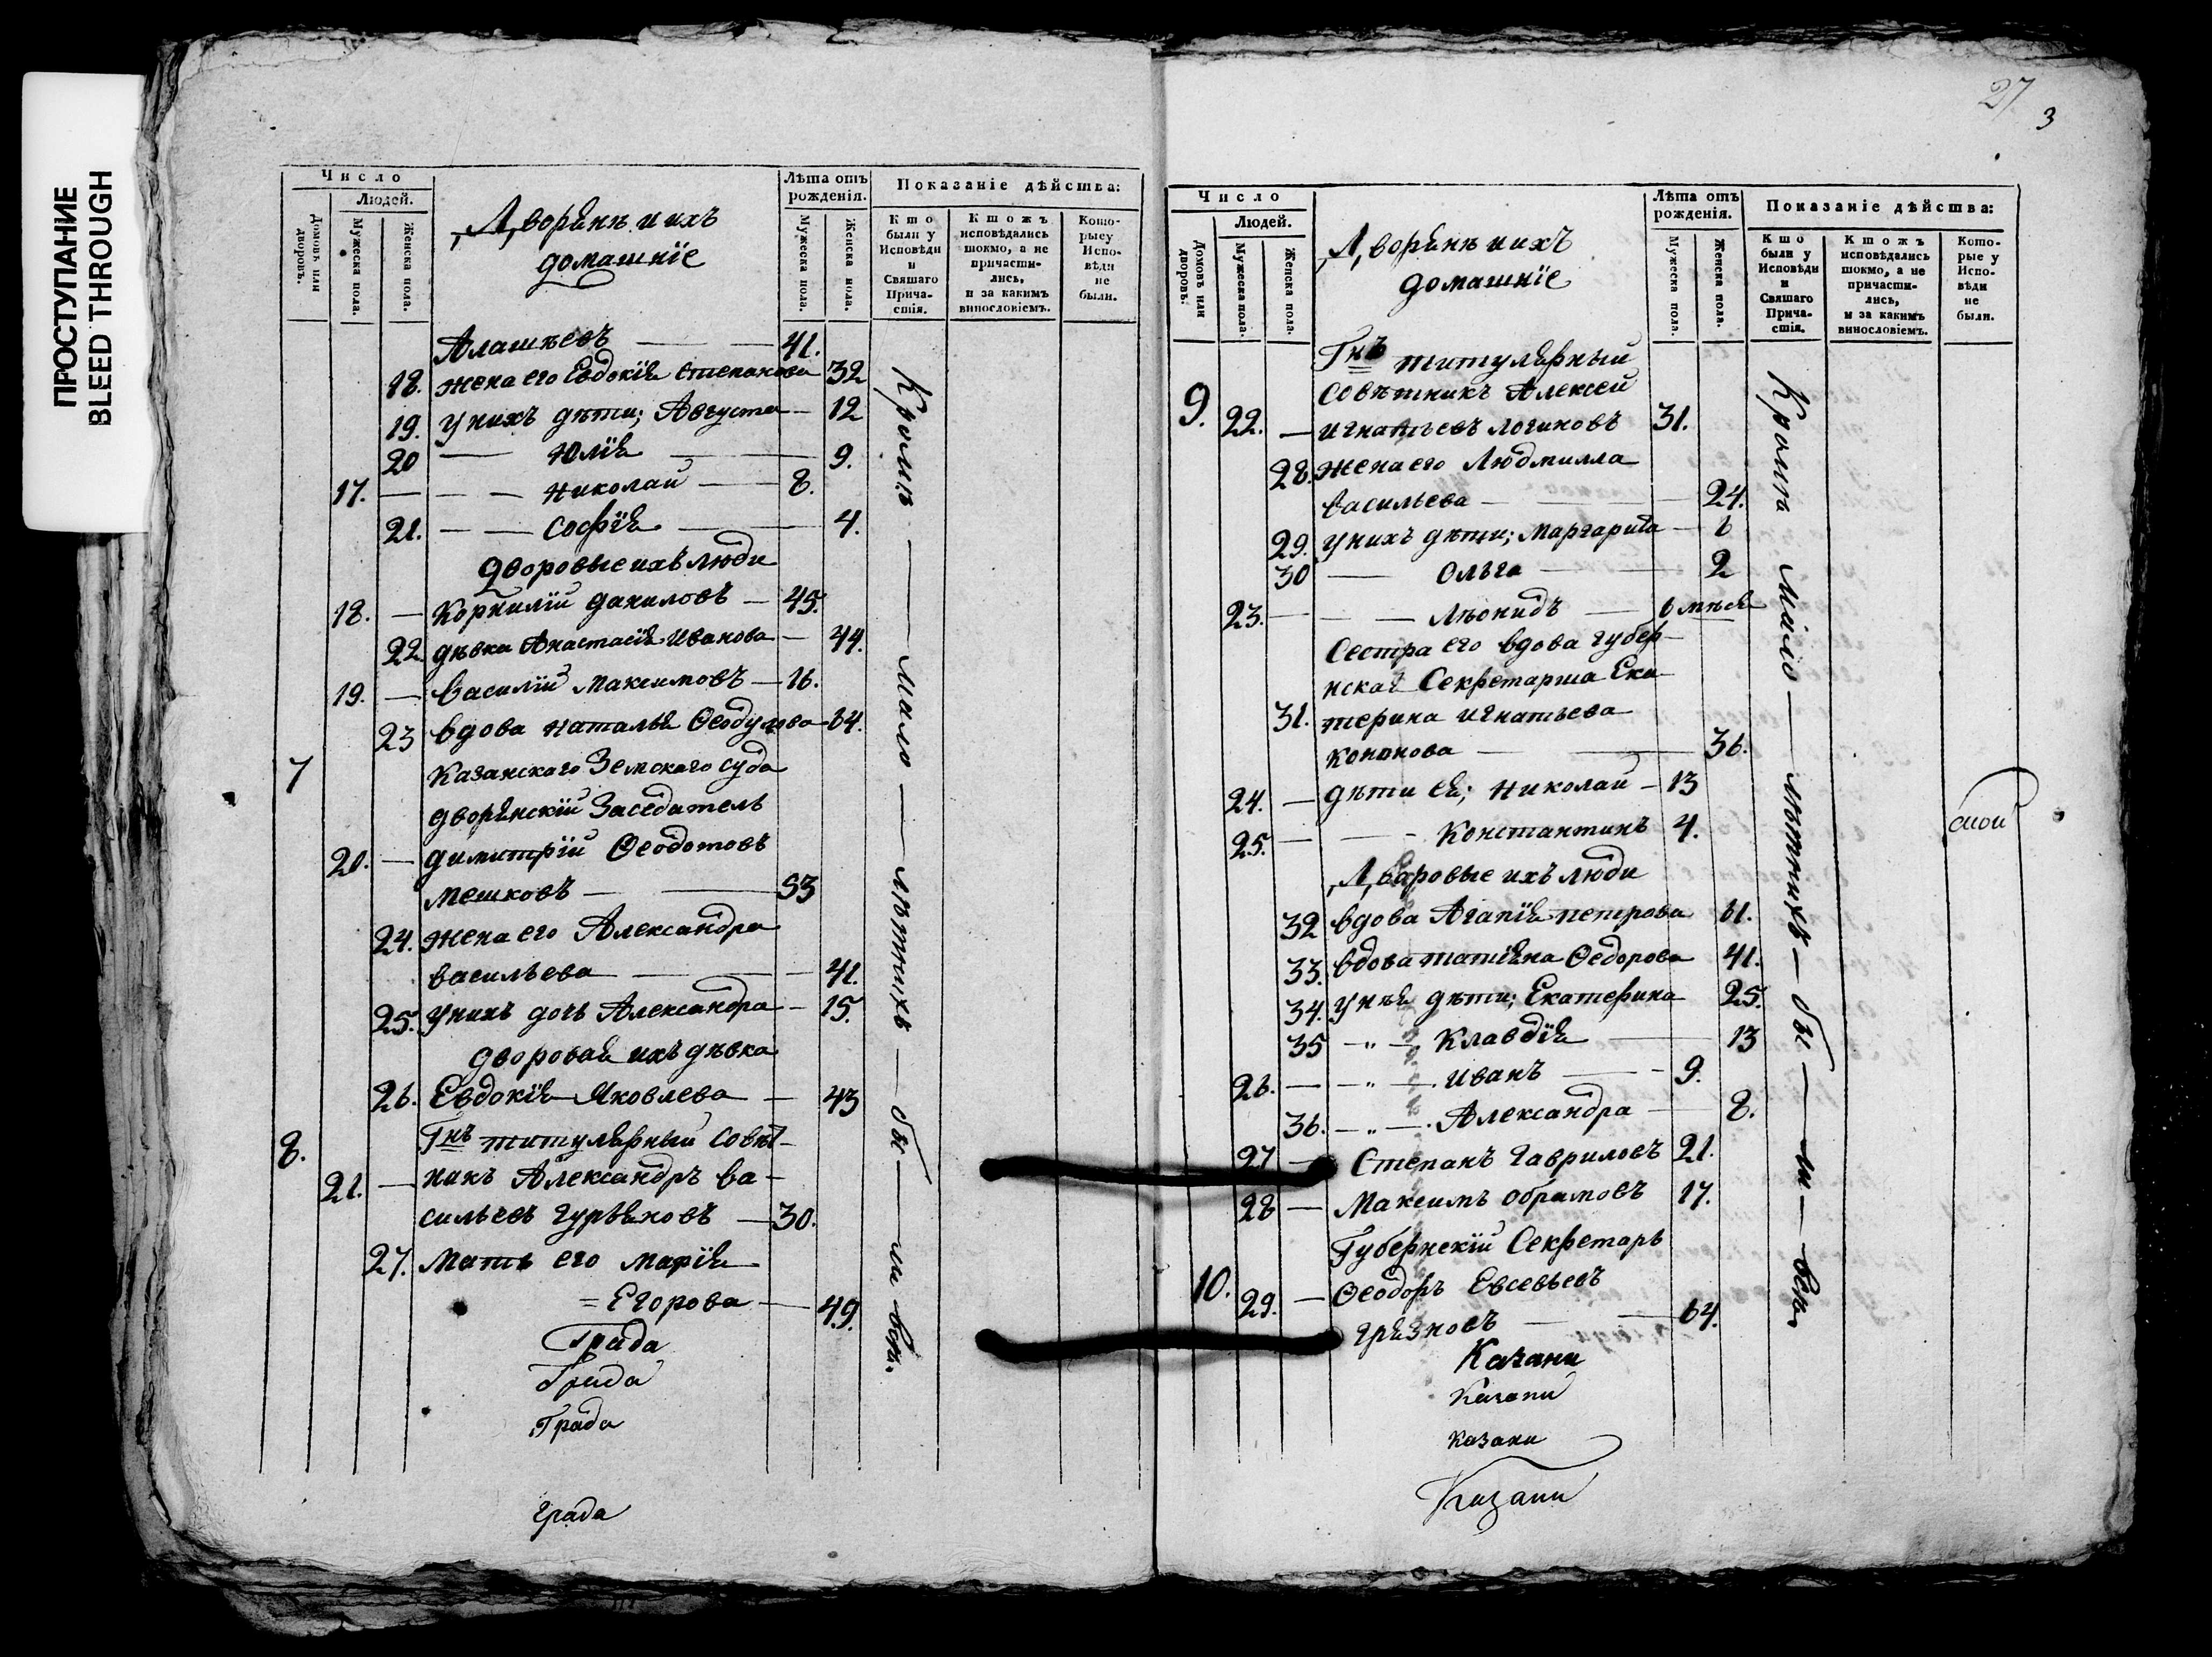 ПРОСТУПАНИЕ
BLEED THROUGH
Число
Людей.
Домовъ или дворовъ.
Мужеска пола.
Женска пола.
Дворяне и ихъ
домашніе
Лѣта отъ рожденія.
Мужеска пола.
Женска пола.
Показаніе дѣйства:
Кто были у Исповѣди и Святаго Причастія.
Ктожъ исповѣдались токмо, а не причастились, и за какимъ винословіемъ.
Которые у Исповѣди не были.
Алашѣевъ — 41.
18. жена его Евдокія Степанова 32
19. у нихъ дѣти; Августа — 12
20 — Юлія — 9.
17. — Николай — 8.
21. — Софія — 4.
дворовые ихъ люди
18. — Корнилій Даниловъ — 45.
22 дѣвка Анастасія Иванова — 44.
19. — Василій Максимовъ — 16.
23 вдова Наталья Ѳеодулова 64.
7 Казанскаго Земскаго суда
дворянскій Заседатель
20. — Димитрій Ѳеодотовъ
Мешковъ — 53
24. жена его Александра
Васильева — 41.
25. у нихъ дочь Александра — 15.
дворовая ихъ дѣвка
26. Евдокія Яковлева — 43
8. Гнъ титулярный Совѣт-
21. — никъ Александръ Ва-
сильевъ Гурьяновъ — 30.
27. Мать его Марія
= Егорова — 49.
Града
Града
Града
града
Кромѣ — мало — лѣтнихъ — бы — ли вси.
27
3
Число
Людей.
Домовъ или дворовъ.
Мужеска пола.
Женска пола.
Дворяне и ихъ
домашніе
Лѣта отъ рожденія.
Мужеска пола.
Женска пола.
Показаніе дѣйства:
Кто были у Исповѣди и Святаго Причастія.
Ктожъ исповѣдались токмо, а не причастились, и за какимъ винословіемъ.
Которые у Исповѣди не были.
Гнъ титулярный
Совѣтникъ Алексей
9. 22. — Игнатьевъ Логиновъ 31.
28. жена его Людмилла
Васильева — 24.
29. у нихъ дѣти; Маргарита — 6
30 — Ольга — 2
23. — Лѣонидъ — 6 мѣся
Сестра его вдова губер-
нская Секретарша Ека-
31. терина Игнатьева
Конанова — 36.
24. — дѣти ея; Николай — 13
25. — Константинъ 4.
Дваровые ихъ люди
32 вдова Агапія Петрова 61.
33. вдова Татіяна Ѳедорова 41.
34. у нѣя дѣти; Екатерина 25.
35 — „ — Клавдія — 13
26. — „ — Иванъ — 9.
36. — „ — Александра — 8.
27 — Степанъ Гавриловъ 21.
28 — Максимъ Обрамовъ 17.
Губернскій Секретарь
10. 29. — Ѳеодоръ Евсевьевъ
Грязновъ — 64.
Казани
Казани
Казани
Казани
Кромѣ мало — лѣтнихъ — бы — ли — вси